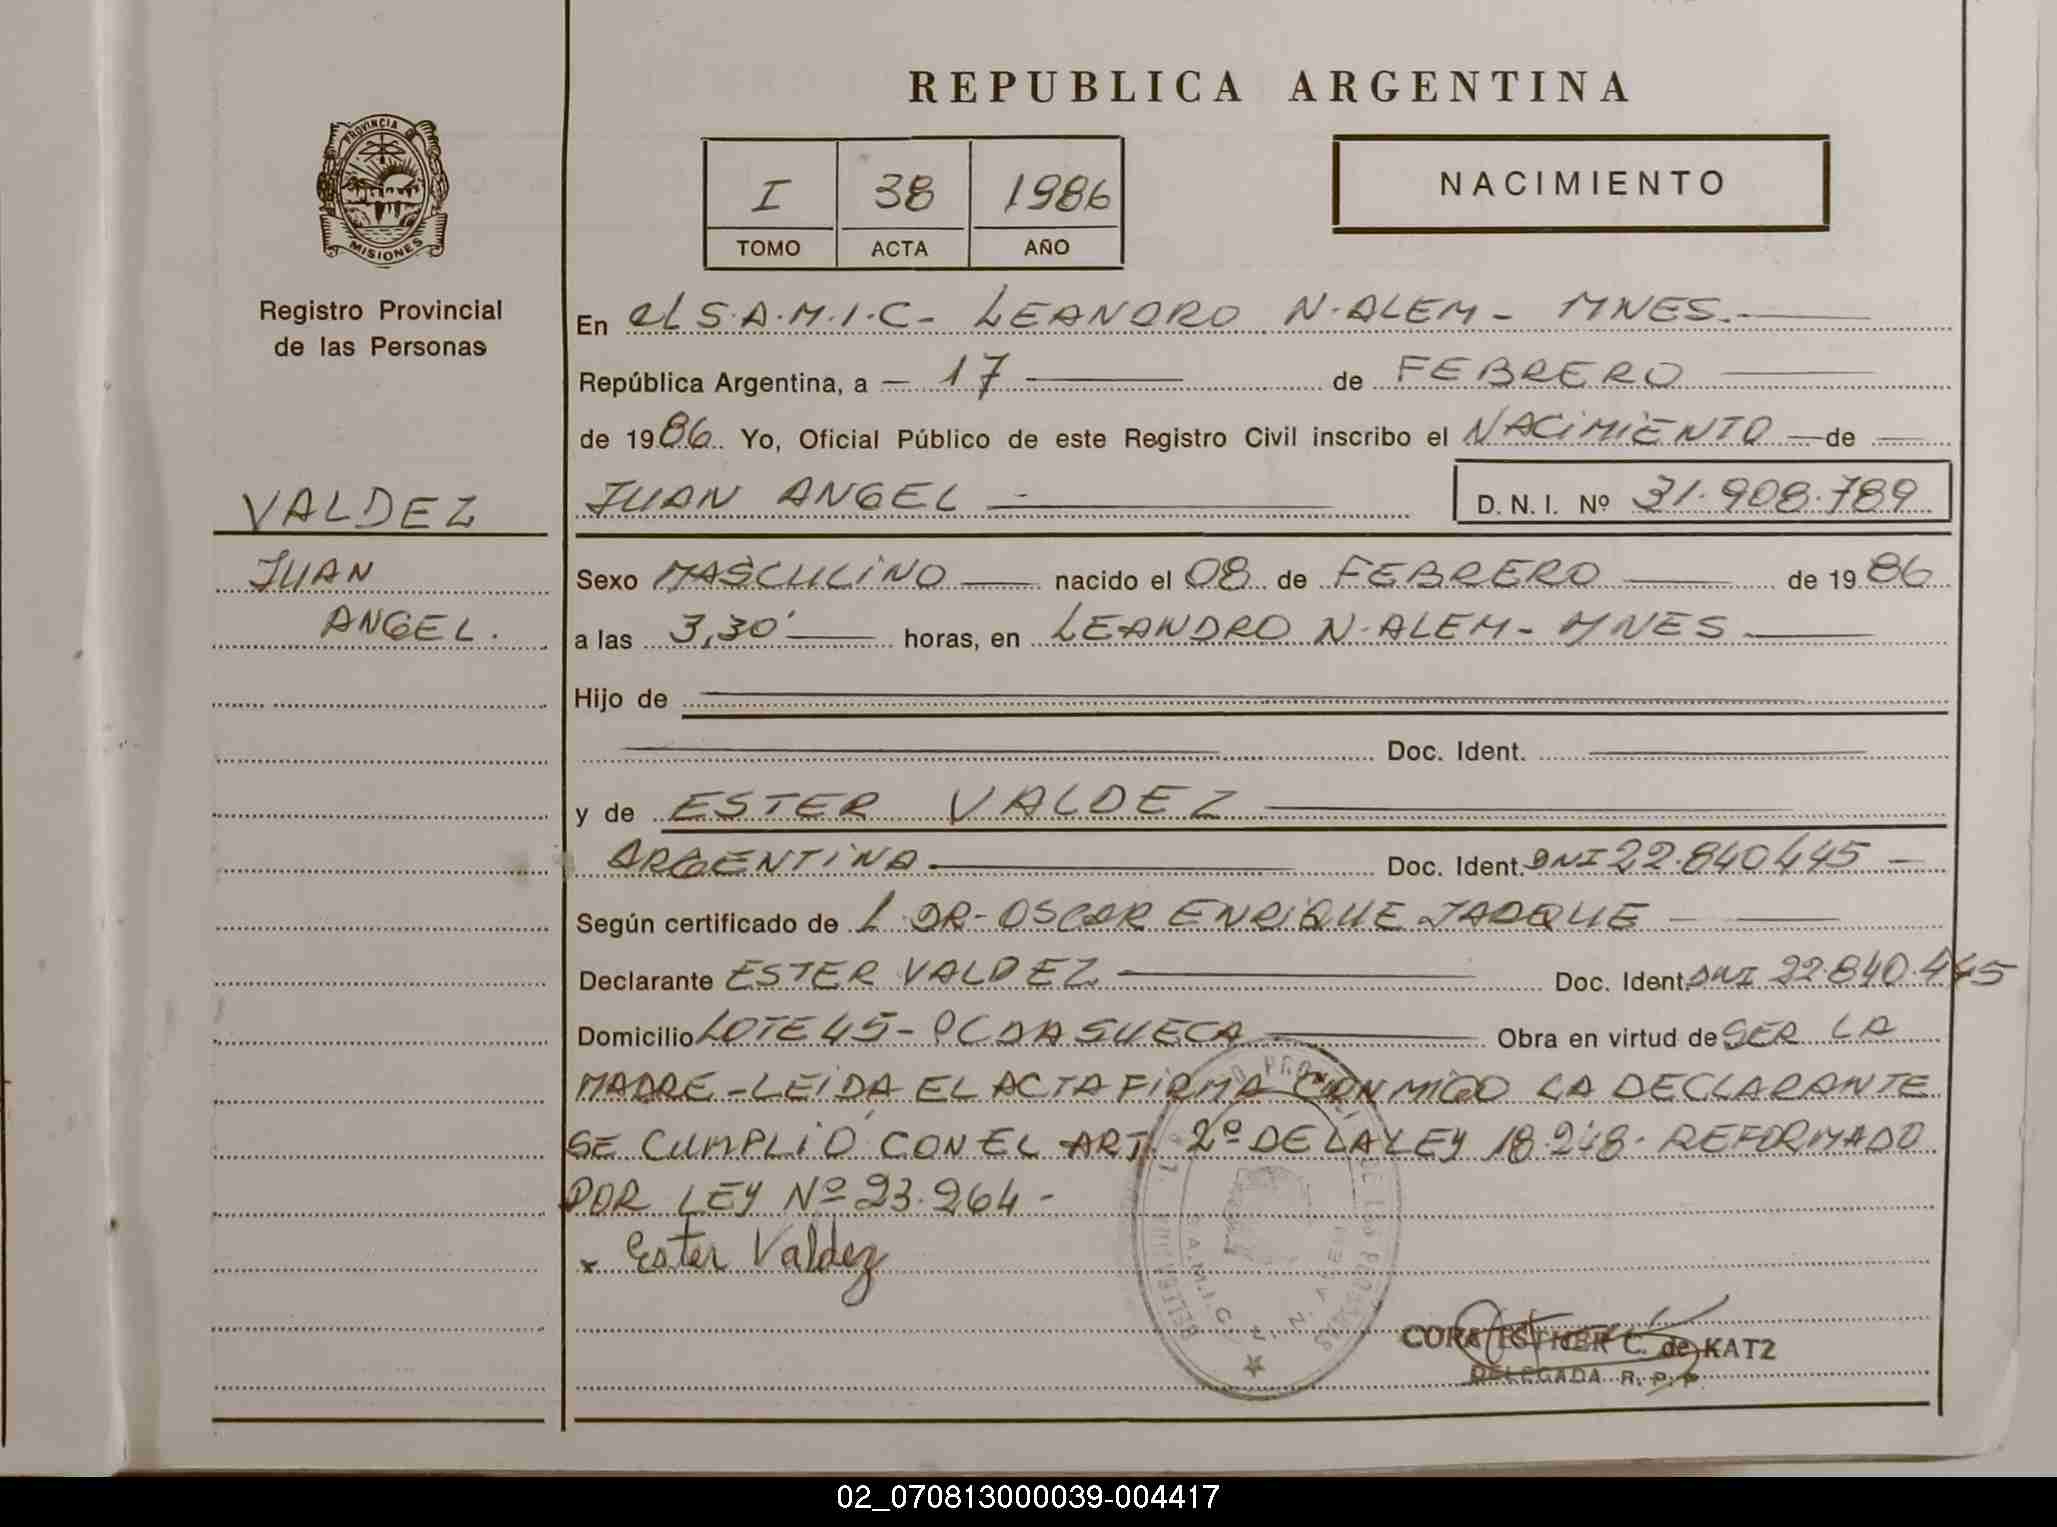 REPUBLICA ARGENTINA
PROVINCIA DE
MISIONES
Registro Provincial
de las Personas
I 38 1986
TOMO ACTA AÑO
NACIMIENTO
En el S.A.M.I.C- LEANDRO N. ALEM - MNES.
República Argentina, a - 17 de FEBRERO
de 1986. Yo, Oficial Público de este Registro Civil inscribo el NACIMIENTO - de
VALDEZ
JUAN ANGEL D. N. I. Nº 31.908.789
JUAN
ANGEL.
Sexo MASCULINO nacido el 08 de FEBRERO de 1986
a las 3,30' horas, en LEANDRO N. ALEM - MNES
Hijo de
Doc. Ident.
y de ESTER VALDEZ
ARGENTINA Doc. Ident. DNI 22.840.445 -
Según certificado de L DR- OSCAR ENRIQUE JADQUE
Declarante ESTER VALDEZ Doc. Ident. DNI 22.840.445
Domicilio LOTE 45 - PCDA SUECA Obra en virtud de SER LA
MADRE - LEIDA EL ACTA FIRMA CONMIGO LA DECLARANTE
SE CUMPLIO CON EL ART. 2º DE LA LEY 18.248. REFORMADO
POR LEY Nº 23.264 -
x Ester Valdez
CORA ESTHER C. de KATZ
DELEGADA R. P. P.
02_070813000039-004417